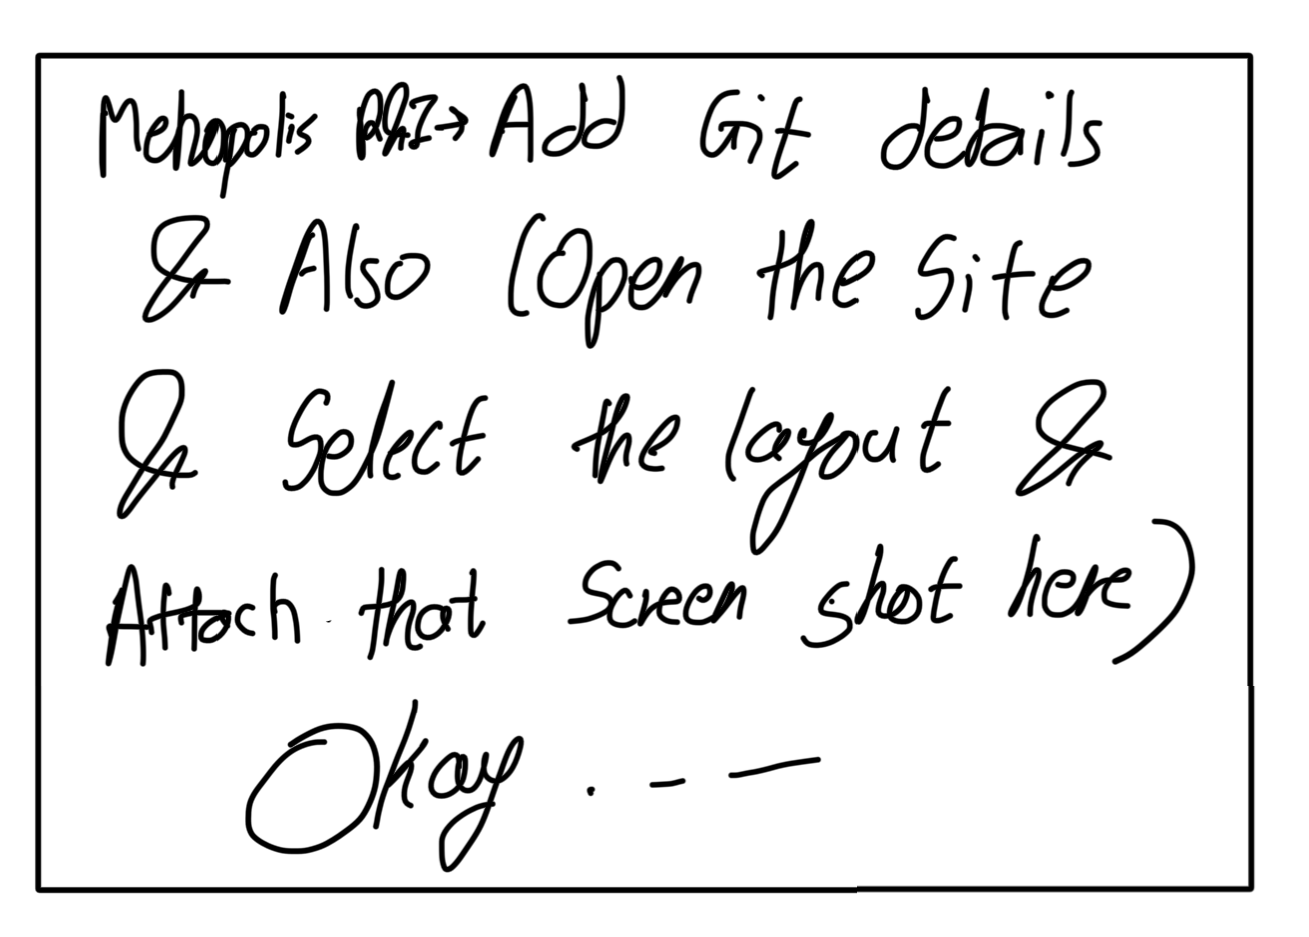 Metropolis R&I → Add Git details
& Also (Open the Site
& Select the layout &
Attach that Screen shot here)
Okay . - —